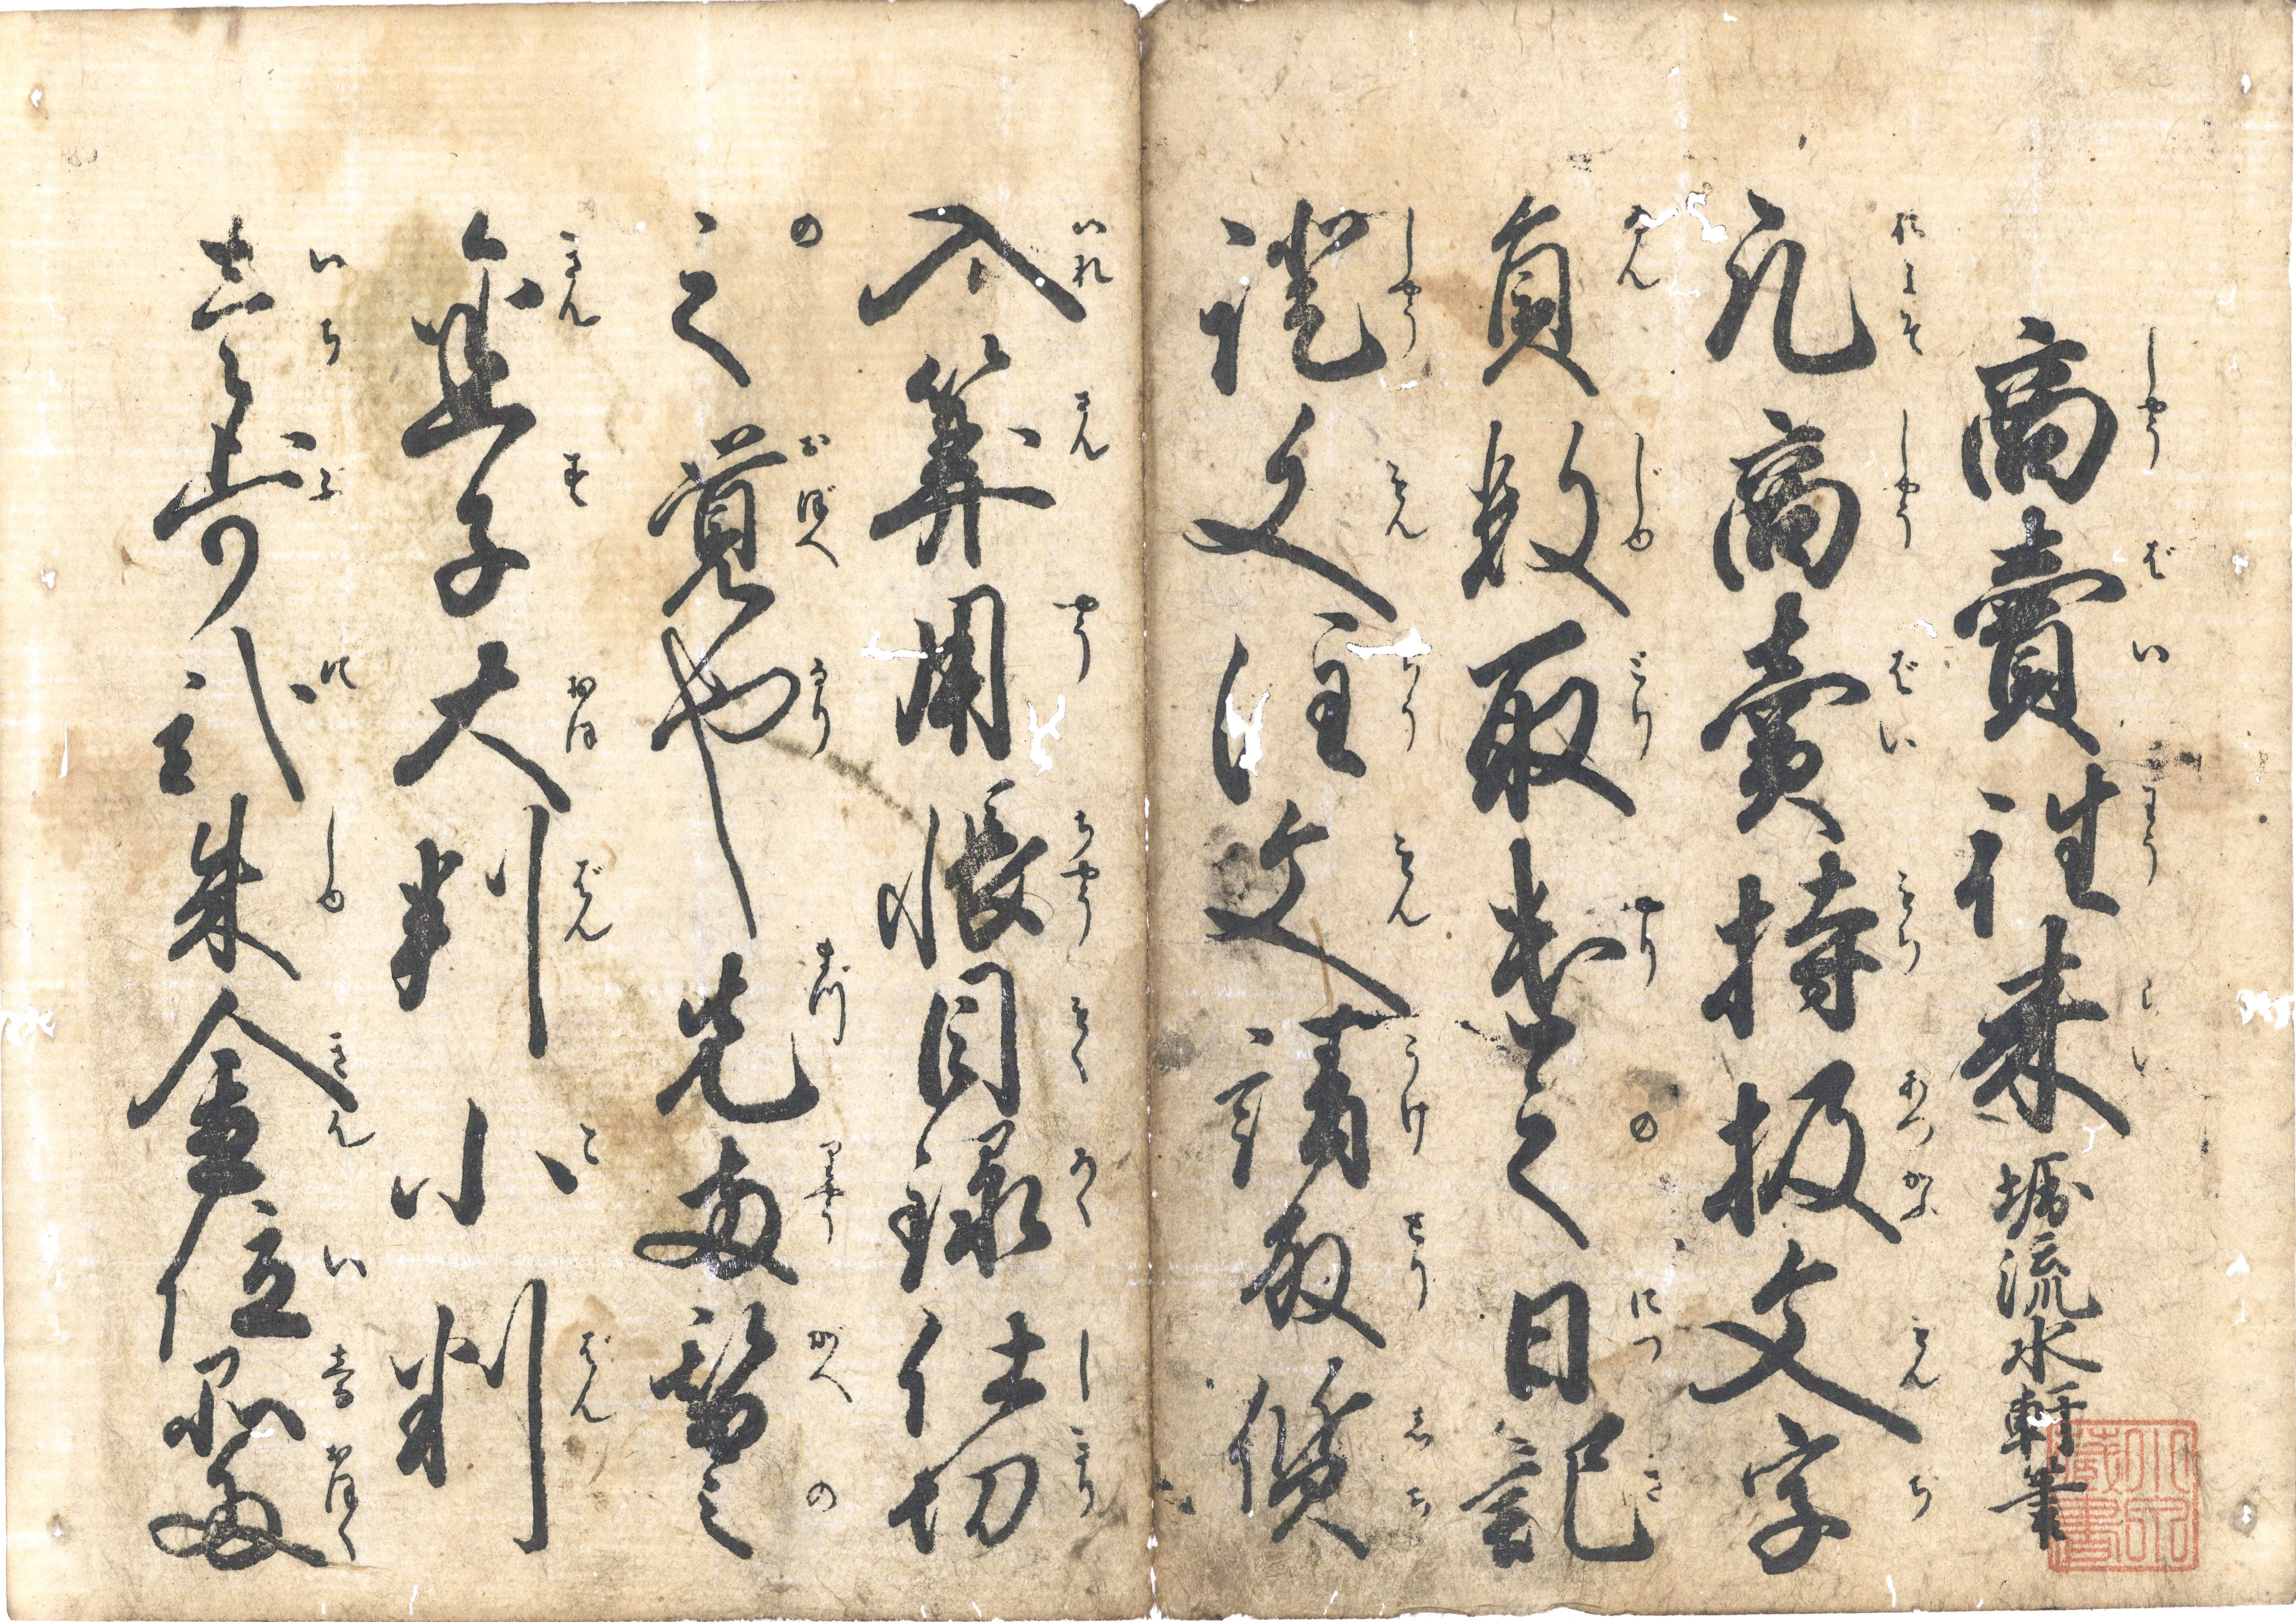 しやうばいわうらい
商賣往来 堀流水軒筆
およそしやうばいもちあつかふもんじ
凡商賣持扱文字
ゐんじゆとりやりのにつき
員数取遣之日記
しやうもんちうもんうけとりしち
證文注文請取質
いれさんやうちやうもくろくしきり
入算用帳目録仕切
のおぼへなりまづりやうがへの
之覚也先両替之
きんすおほばんこばん
金子大判小判
いちぶにしゆきんいしなおほく
壱歩弐朱金位品多